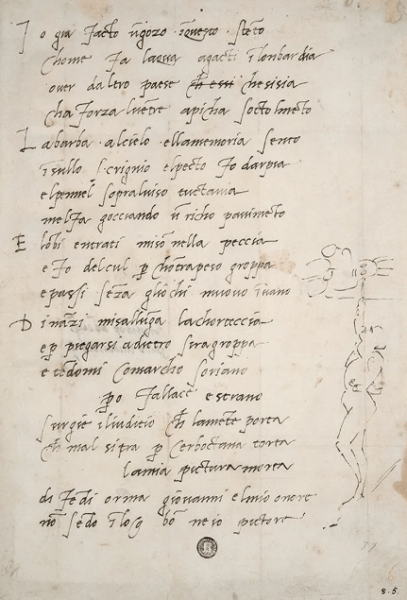 I o gia facto ũgozo ĩquesto stẽto
chome fa lacqua agacti ĩlombardia
over daltro paese ch essi chesisia
cha forza luẽtre apicha soctolmẽto
L abarba alcielo ellamemoria sento
ĩsullo scrignio elpecto fo darpia
elpennel sopraluiso tuctauia
melfa gocciando ũ richo pauimẽto
E lobi entrati misõ nella peccia
e fo delcul p chõtrapeso groppa
e passi sẽza gliochi muouo ĩuano
D inãzi misallũga lachorteccia
e p piegarsi adietro siragroppa
e tẽdomi comarcho soriano
po fallace e strano
surgie iliuditio ch lamẽte porta
ch mal si tra p cerboctana torta
lamia pictura morta
di fẽdi orma giouanni elmio onore
nõ sẽdo ĩ bõ ne io pictore
8.5.